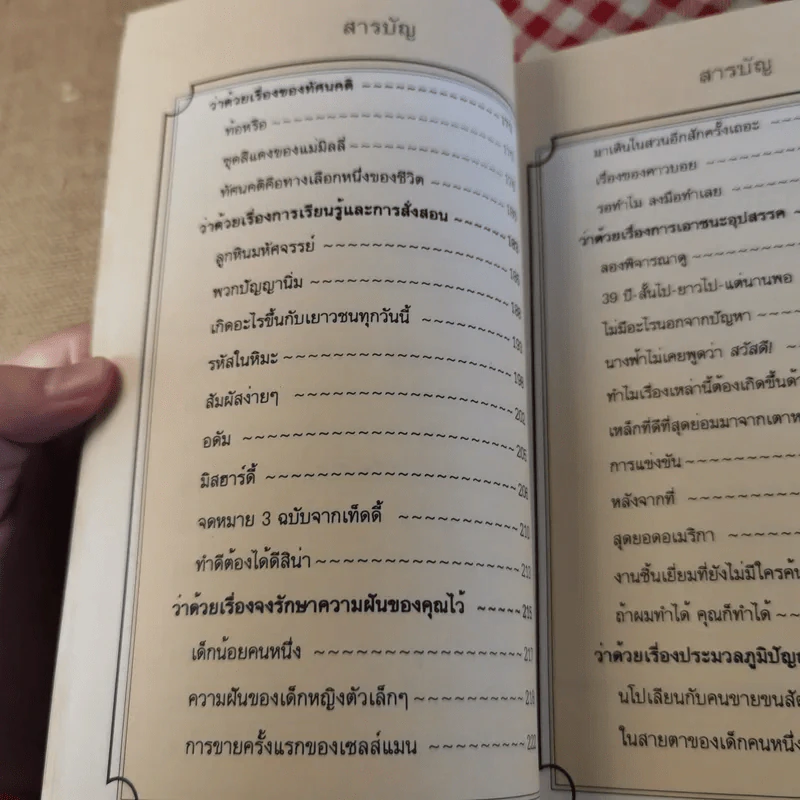 สารบัญ
ว่าด้วยเรื่องของทัศนคติ
ท้อหรือ
ชุดสีแดงของแม่มิลลี่
ทัศนคติคือทางเลือกหนึ่งของชีวิต
ว่าด้วยเรื่องการเรียนรู้และการสั่งสอน ~~~~~ 183
ลูกหินมหัศจรรย์ ~~~~~ 185
พวกปัญญานิ่ม ~~~~~ 188
เกิดอะไรขึ้นกับเยาวชนทุกวันนี้ ~~~~~ 193
รหัสในหิมะ ~~~~~ 198
สัมผัสง่ายๆ ~~~~~ 202
อดัม ~~~~~ 205
มิสฮาร์ดี้ ~~~~~ 206
จดหมาย 3 ฉบับจากเท็ดดี้ ~~~~~ 210
ทำดีต้องได้ดีสิน่า ~~~~~
ว่าด้วยเรื่องจงรักษาความฝันของคุณไว้ ~~~~~ 215
เด็กน้อยคนหนึ่ง ~~~~~ 217
ความฝันของเด็กหญิงตัวเล็กๆ ~~~~~ 218
การขายครั้งแรกของเซลส์แมน ~~~~~ 222
สารบัญ
มาเดินในสวนอีกสักครั้งเถอะ
เรื่องของคาวบอย
รอทำไม ลงมือทำเลย
ว่าด้วยเรื่องการเอาชนะอุปสรรค
ลองพิจารณาดู
39 ปี-สั้นไป-ยาวไป-แต่นานพอ
ไม่มีอะไรนอกจากปัญหา
นางฟ้าไม่เคยพูดว่า สวัสดี!
ทำไมเรื่องเหล่านี้ต้องเกิดขึ้น
เหล็กที่ดีที่สุดย่อมมาจากเตา
การแข่งขัน
หลังจากที่
สุดยอดอเมริกา
งานชิ้นเยี่ยมที่ยังไม่มีใคร
ถ้าผมทำได้ คุณก็ทำได้
ว่าด้วยเรื่องประมวลภูมิ
นโปเลียนกับคนขายขน
ในสายตาของเด็กคนหนึ่ง